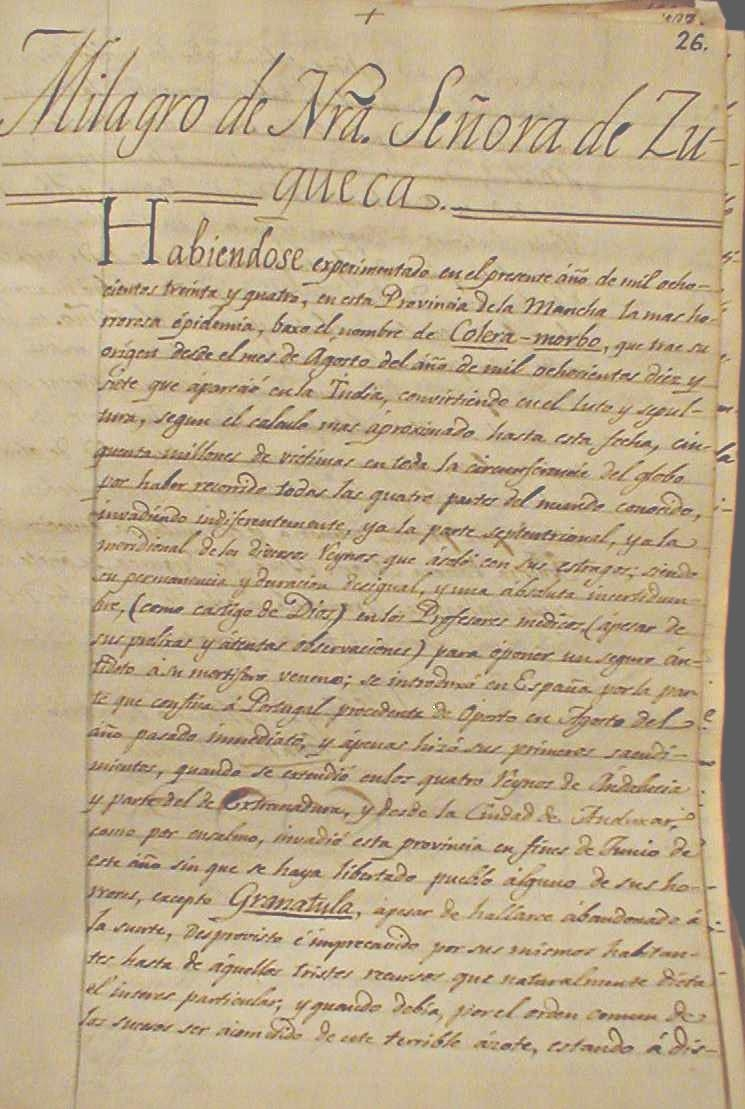 26.
Milagro de Nrã. Señora de Zu-
queca.
Habiendose experimentado en el presente áño de mil ocho-
cientos treinta y quatro, en esta Provincia de la Mancha la mas ho-
rrorosa épidemia, baxo el nombre de Colera-morbo, que trae su
origen desde el mes de Agosto del áño de mil ochocientos diez y
siete que ápareció en la India, convirtiendo en el luto y sepul-
tura, segun el calculo mas áproximado hasta esta fecha, cin-
quenta millones de victimas en toda la circunferencia del globo
por haber recorrido todas las quatro partes del mundo conocido,
invadiendo indiferentemente, ya la parte septentrional, y a la
meridional de los diversos Reynos que ásoló con sus estragos; siendo
su permanencia y duracion desigual, y una ábsoluta incertidum-
bre, (como castigo de Dios) en los Profesores medicos (ápesar de
sus prolixas y átentas observaciones) para óponer un seguro án-
tidoto á su mortifero veneno; se introduxo en España por la par-
te que confina á Portugal procedente de Oporto en Agosto del
áño pasado inmediato, y ápenas hizo sus primeros sacudi-
mientos, quando se extendió en los quatro Reynos de Andalucia
y parte del de Extremadura, y desde la Ciudad de Anduxar,
como por ensalmo, invadió esta provincia en fines de Junio de
este áño sin que se haya libertado pueblo álguno de sus ho-
rrores, excepto Granatula, ápesar de hallarse ábandonado á
la suerte, desprovisto é imprecavido por sus mismos habitan-
tes hasta de áquellos tristes recursos que naturalmente dicta
el interes particular; y quando debia, por el orden comun de
los sucesos ser acometido de este terrible ázote, estando á dis-